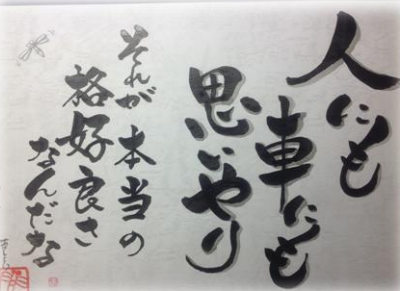 人にも
車にも
思いやり
それが本当の
格好良さ
なんだな